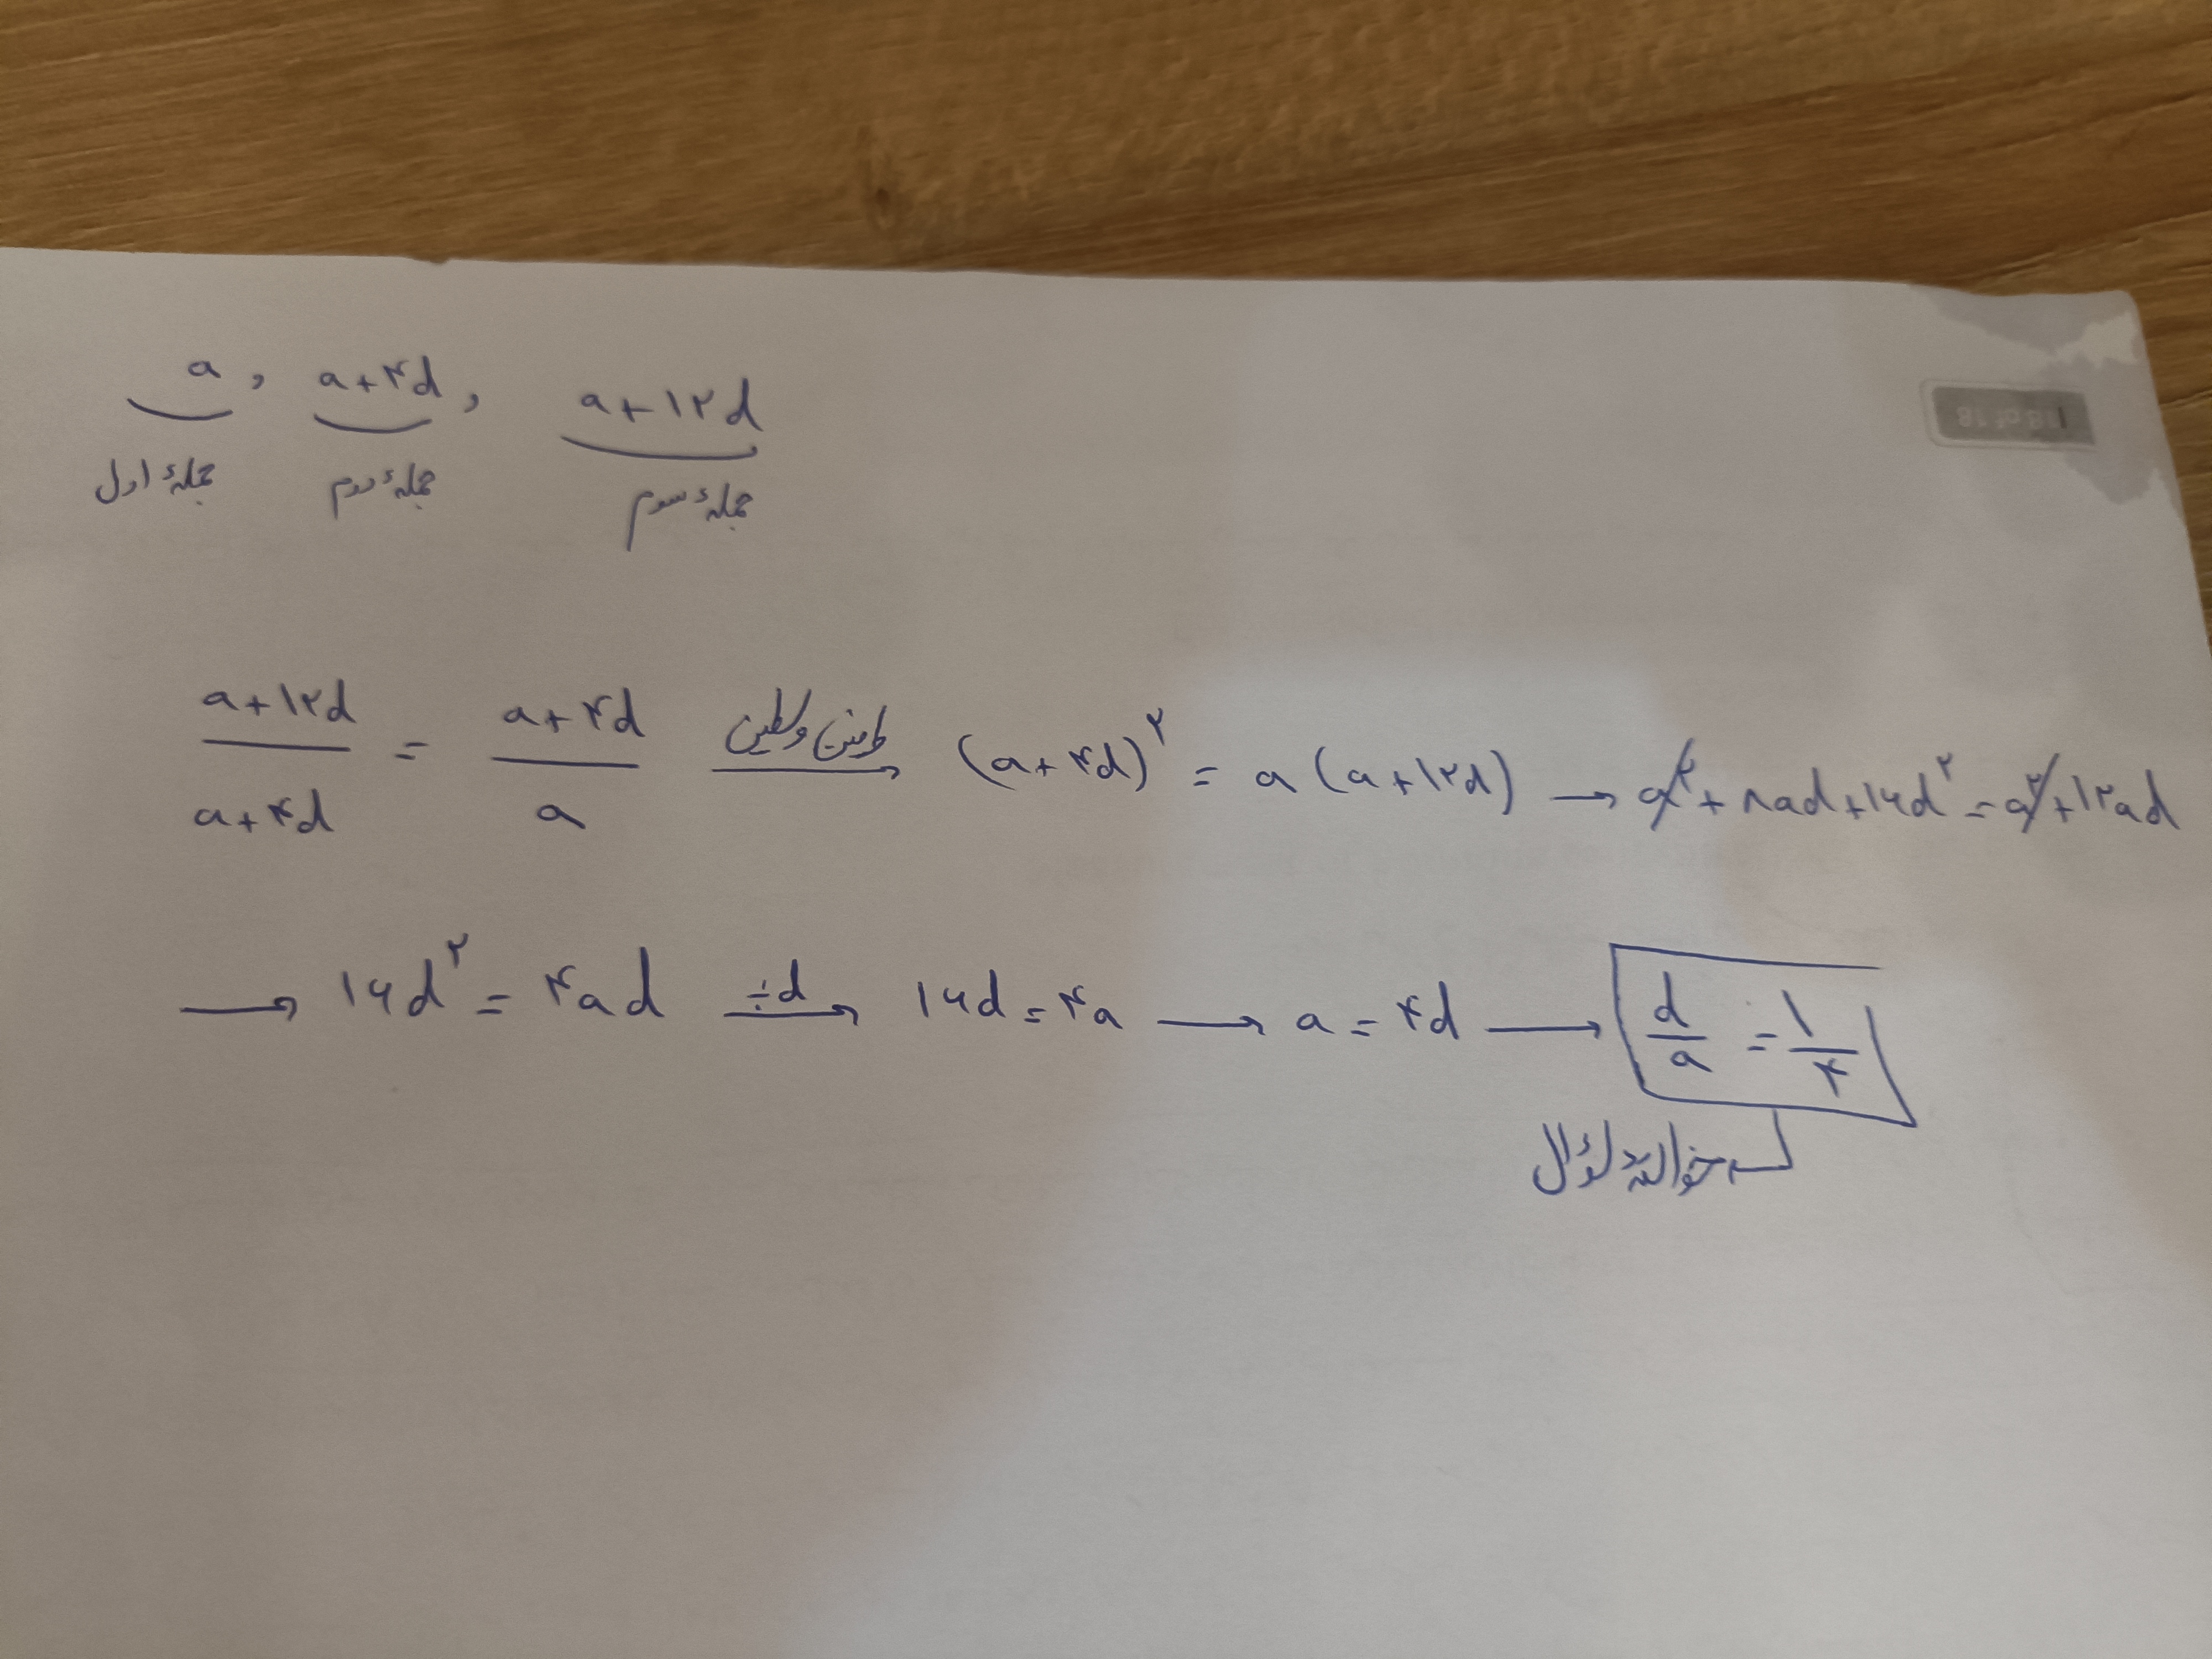 a , a+۴d , a+۱۲d
جملهٔ اول جملهٔ دوم جملهٔ سوم
(a+۱۲d)/(a+۴d) = (a+۴d)/a طرفین وسطین → (a+۴d)^۲ = a(a+۱۲d) → a^۲+۸ad+۱۶d^۲=a^۲+۱۲ad
→ ۱۶d^۲ = ۴ad ÷d → ۱۶d=۴a → a=۴d → d/a = ۱/۴
خواستهٔ سؤال